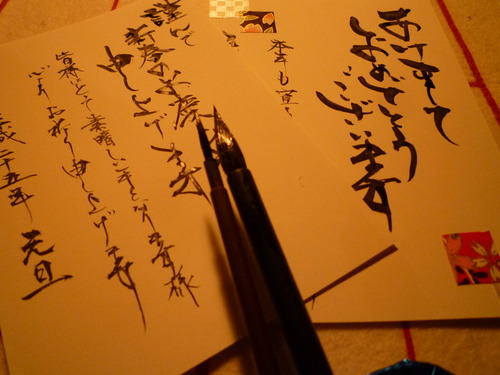 あけまして
おめでとう
ございます
本年も宜し
謹んで
新春のお慶び
申し上げます
皆様にとって素晴しい年となります様
心よりお祈り申し上げます
平成二十五年 元旦